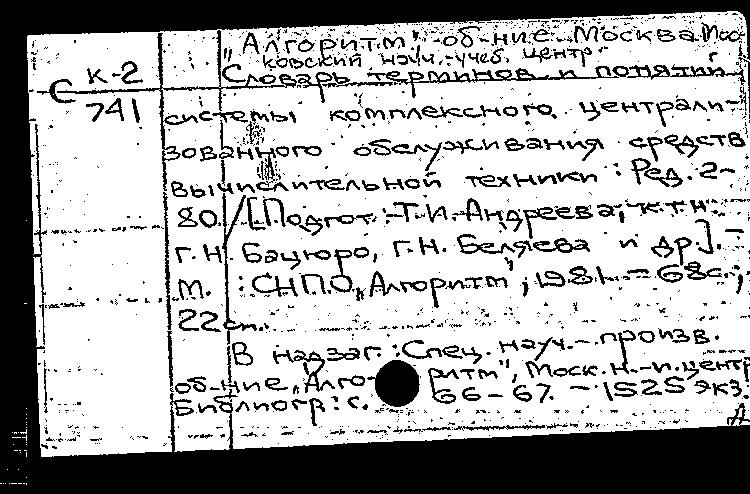 „Алгоритм", об-ние. Москва. Мос
ковский науч.-учеб. центр"
С К-2
741
Словарь терминов и понятий
системы комплексного централи-
зованного обслуживания средств
вычислительной техники : Ред. 2-
80 / [Подгот.: Т.И. Андреева, к.т.н.
Г.Н. Бацюро, Г.Н. Беляева и др.]. -
М. : СНПО „Алгоритм", 1981. - 68с.;
22 см.
В надзаг.: Спец. науч.-произв.
об-ние „Алгоритм", Моск. н.-и. центр
Библиогр.: с. 66-67. - 1525 экз.